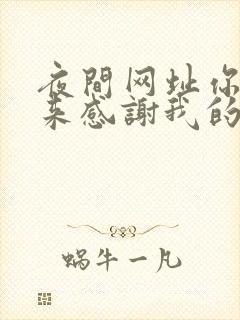 夜間网址你
来感謝我的
蝸牛一凡